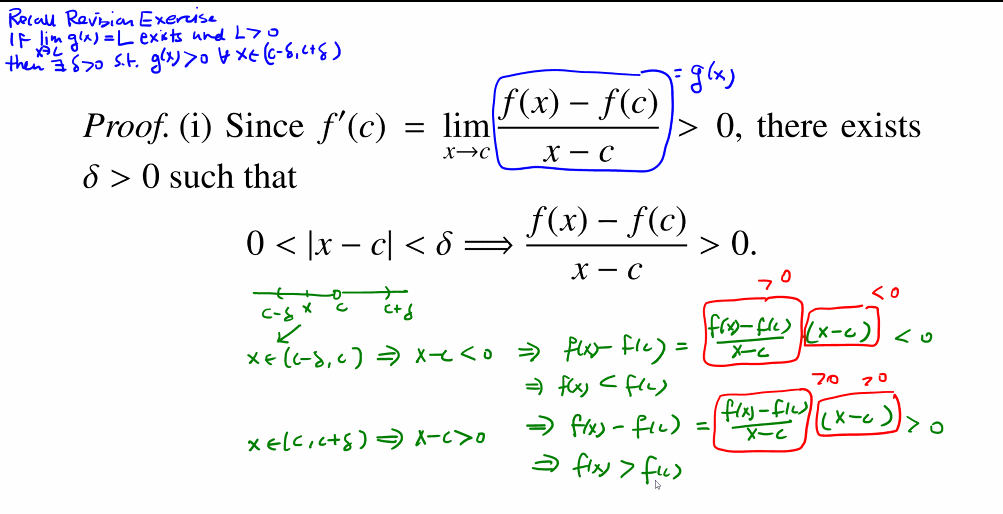 Recall Revision Exercise
IF lim g(x) = L exists and L > 0
x→c
then ∃ δ>0 s.t. g(x)>0 ∀ x∈(c-δ, c+δ)
= g(x)
Proof. (i) Since f′(c) = lim_{x→c} (f(x) − f(c))/(x − c) > 0, there exists
δ > 0 such that
0 < |x − c| < δ ⟹ (f(x) − f(c))/(x − c) > 0.
> 0 < 0
c-δ x c c+δ
x∈(c-δ, c) ⇒ x-c < 0 ⇒ f(x) - f(c) = (f(x)-f(c))/(x-c) (x-c) < 0
⇒ f(x) < f(c)
>0 >0
x∈(c, c+δ) ⇒ x-c>0 ⇒ f(x) - f(c) = (f(x)-f(c))/(x-c) (x-c) > 0
⇒ f(x) > f(c)